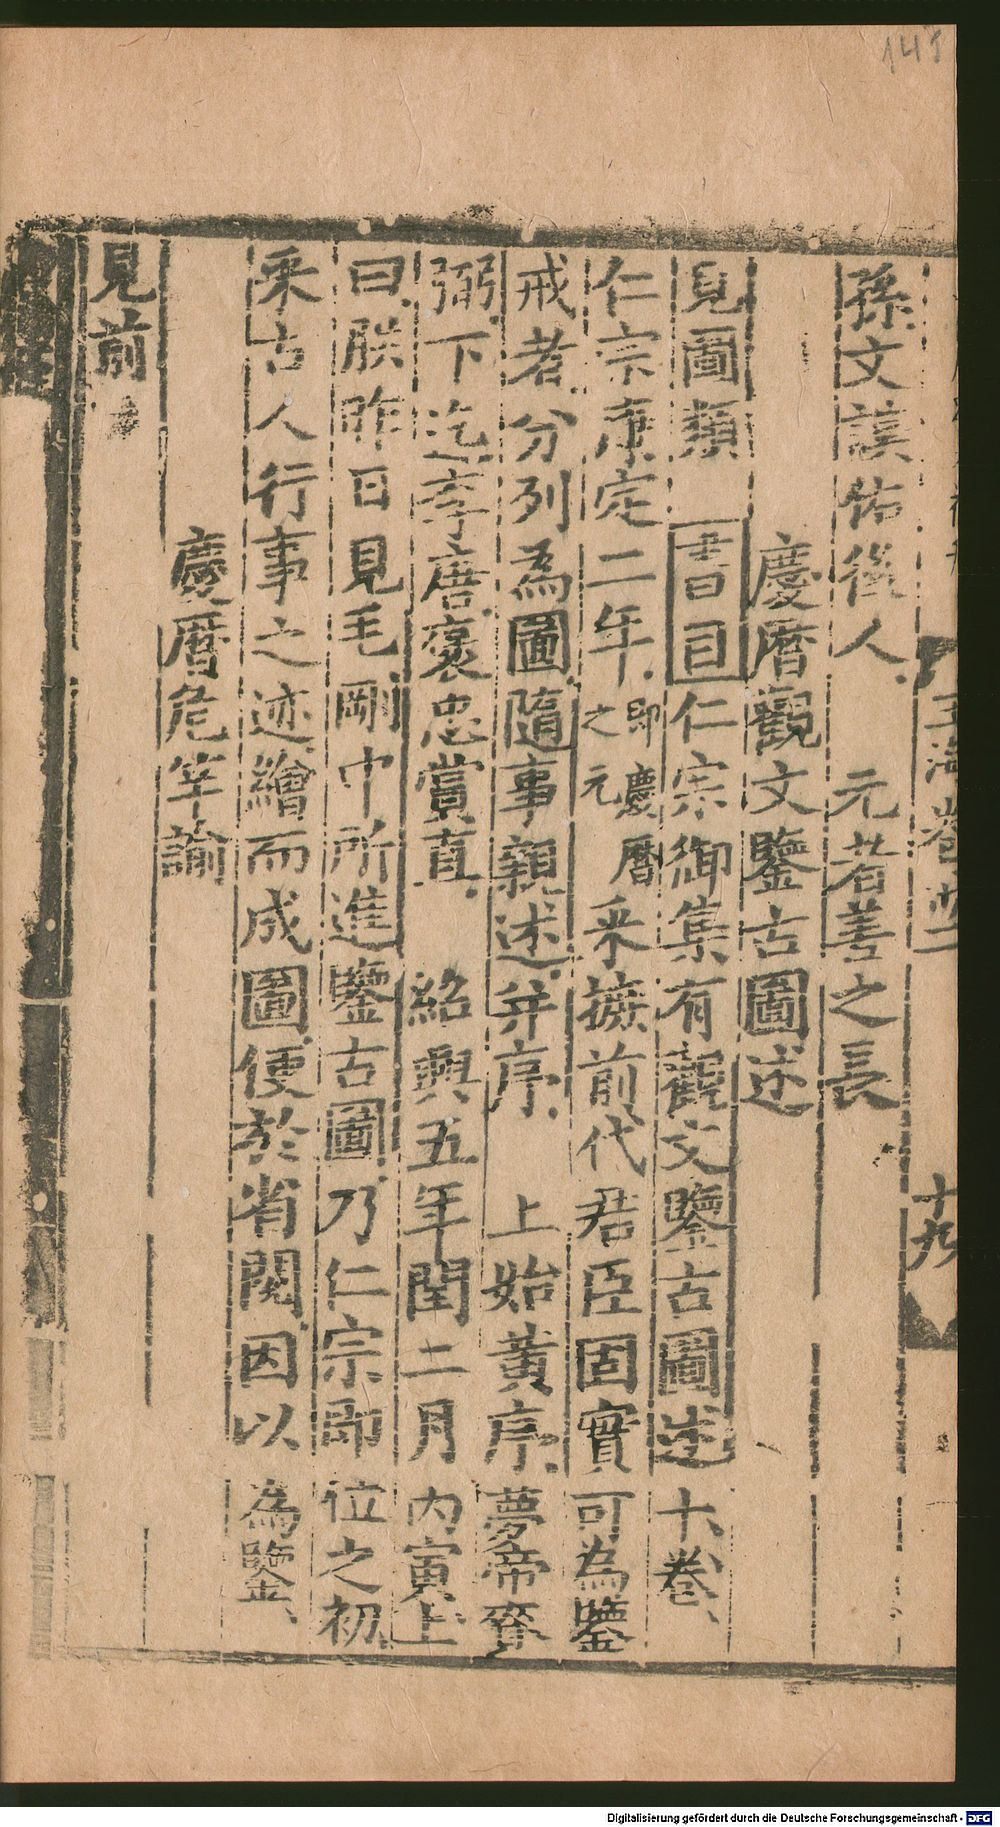 145
玉海卷廿二　十九
孫文謨佑後人　元者善之長
慶曆觀文鑒古圖述
見圖類　書目仁宗御集有觀文鑒古圖述十卷
仁宗康定二年即慶曆之元采摭前代君臣固實可為鑒
戒者分列為圖隨事親述并序　上始黃序夢帝賚
弼下迄李唐褒忠賞直　紹興五年閏二月內寅上
曰朕昨日見毛剛中所進鑒古圖乃仁宗即位之初
采古人行事之迹繪而成圖便於省閱因以為鑒
慶曆危竿諭
見前
Digitalisierung gefördert durch die Deutsche Forschungsgemeinschaft - DFG